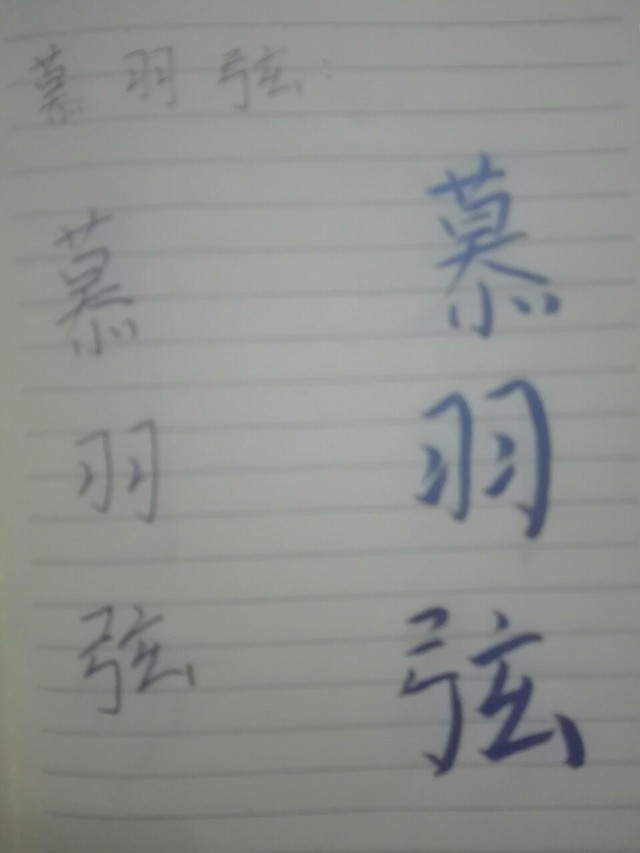 慕羽弦
慕 慕
羽 羽
弦 弦